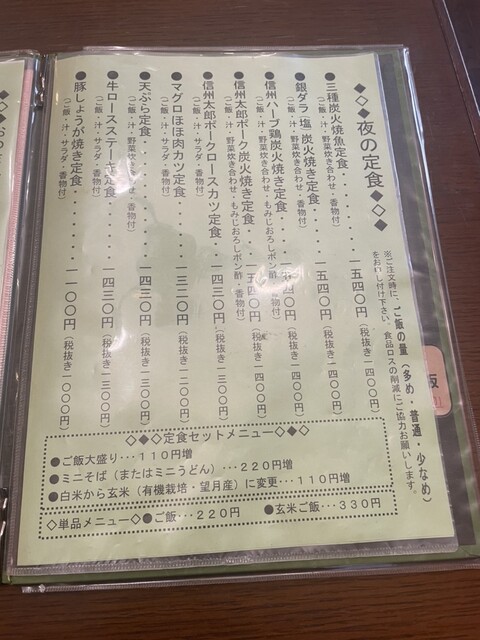 ◆◇夜の定食◇◆
※ご注文時に、ご飯の量(多め・普通・少なめ)
をお申し付け下さい。食品ロスの削減にご協力お願いします。
●三種炭火焼魚定食・・・・・一五四〇円(税抜き一四〇〇円)
(ご飯・汁・野菜炊き合わせ・香物付)
●銀ダラ塩炭火焼き定食・・・・一五四〇円(税抜き一四〇〇円)
(ご飯・汁・野菜炊き合わせ・香物付)
●信州ハーブ鶏炭火焼き定食・・・一五四〇円(税抜き一四〇〇円)
(ご飯・汁・野菜炊き合わせ・もみじおろしポン酢・香物付)
●信州太郎ポーク炭火焼き定食・・一五四〇円(税抜き一四〇〇円)
(ご飯・汁・野菜炊き合わせ・もみじおろしポン酢・香物付)
●信州太郎ポークロースカツ定食・・一四三〇円(税抜き一三〇〇円)
(ご飯・汁・サラダ・香物付)
●マグロほほ肉カツ定食・・・・一三二〇円(税抜き一二〇〇円)
(ご飯・汁・サラダ・香物付)
●天ぷら定食・・・・・・・一四三〇円(税抜き一三〇〇円)
(ご飯・汁・野菜炊き合わせ・香物付)
●牛ロースステーキ定食・・・・一四三〇円(税抜き一三〇〇円)
(ご飯・汁・サラダ・香物付)
●豚しょうが焼き定食・・・・・一一〇〇円(税抜き一〇〇〇円)
(ご飯・汁・サラダ・香物付)
◇◆◇定食セットメニュー◇◆◇
●ご飯大盛り・・・110円増
●ミニそば(またはミニうどん)・・・220円増
●白米から玄米(有機栽培・望月産)に変更・・・110円増
◇単品メニュー◇●ご飯・・・220円 ●玄米ご飯・・・330円
飯